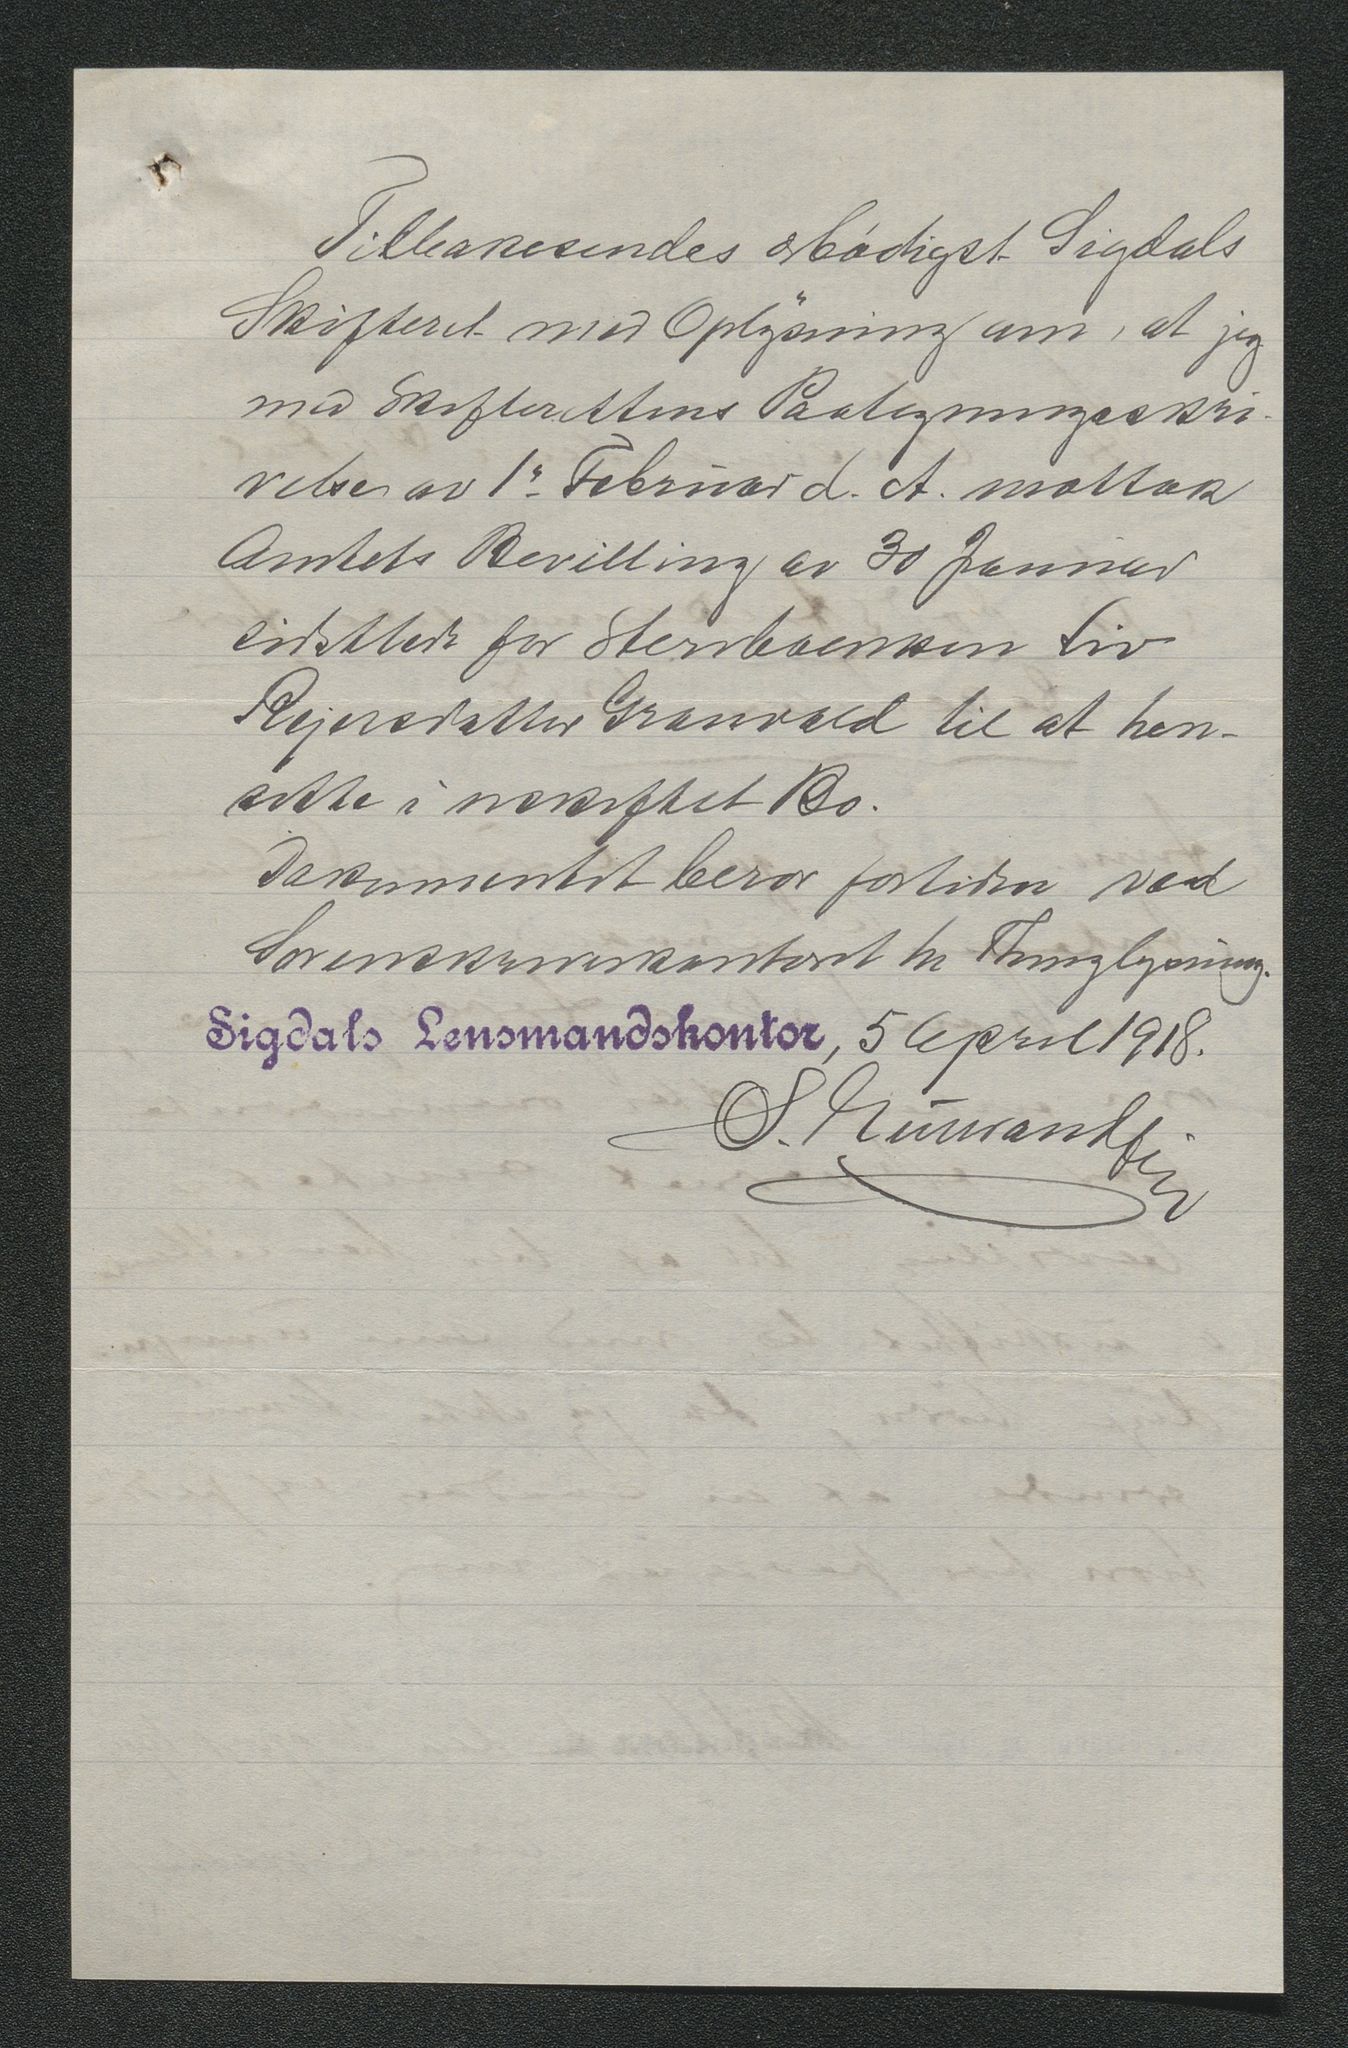 Tilbakesendes ærbødigst Sigdals
Skifteret med Oplysning om, at jeg
med Skifterettens Paategningsskri-
velse av 1ste Februar d. A. mottok
Amtets Bevilling av 30 Januar
sidstleden for Stervboenken Liv
Rejersdatter Granvold til at hen-
sitte i uskiftet Bo.
Dokumentet beror fortiden ved
Sorenskriverkontoret til Thinglysning.
Sigdals Lensmandskontor, 5 April 1918.
S.